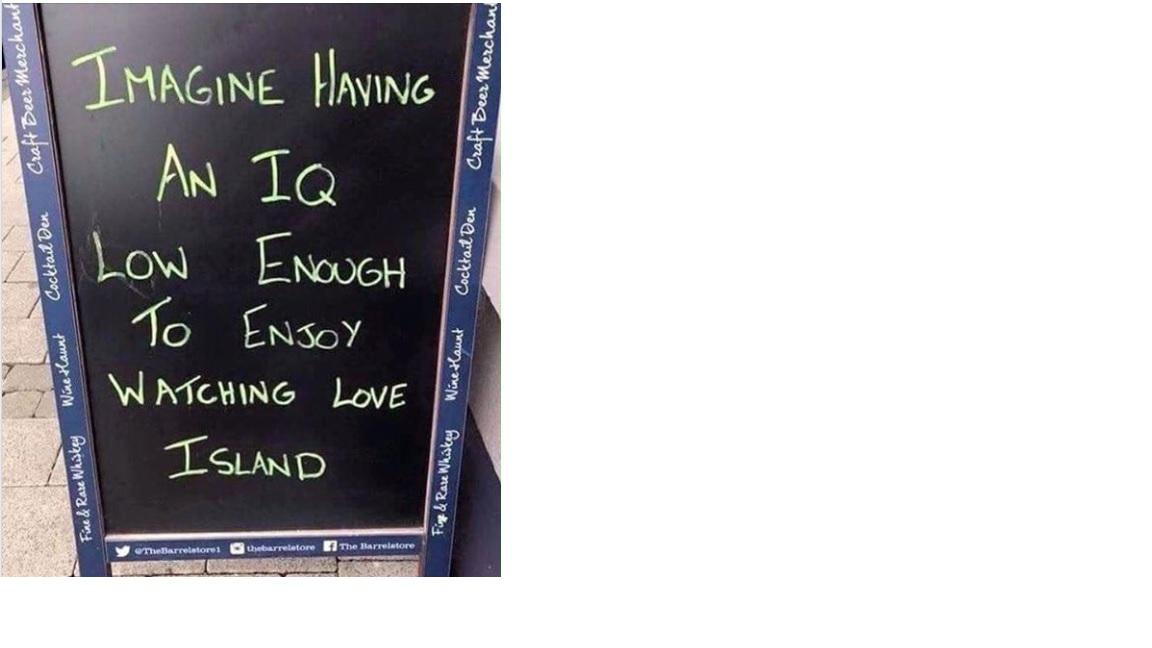 IMAGINE HAVING
AN IQ
LOW ENOUGH
TO ENJOY
WATCHING LOVE
ISLAND
Craft Beer Merchant
Cocktail Den
Wine Haunt
Fine & Rare Whiskey
Craft Beer Merchant
Cocktail Den
Wine Haunt
Fine & Rare Whiskey
@TheBarrelstore1 thebarrelstore The Barrelstore